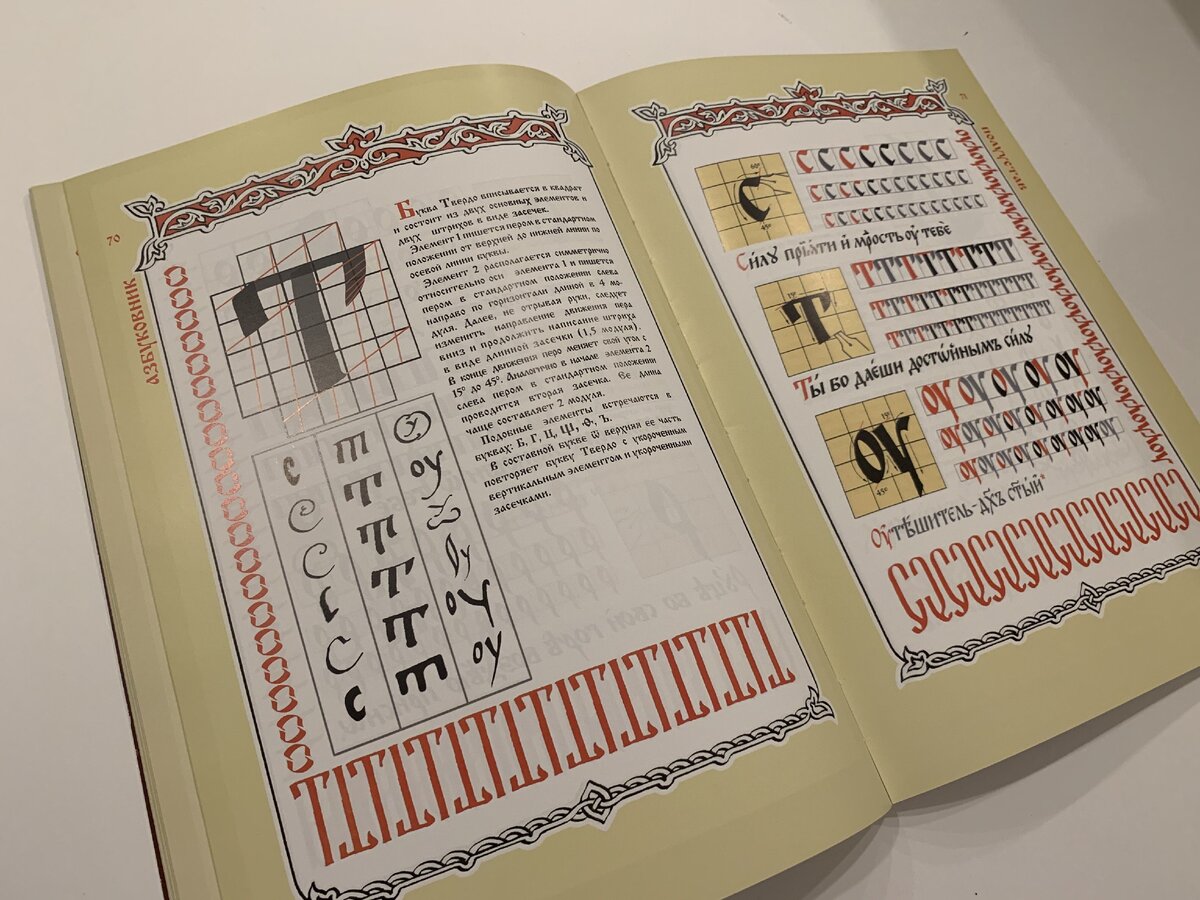 70
АЗБУКОВНИК
Буква Твердо вписывается в квадрат
и состоит из двух основных элементов и
двух штрихов в виде засечек.
Элемент 1 пишется пером в стандартном
положении от верхней до нижней линии по
осевой линии буквы.
Элемент 2 располагается симметрично
относительно оси элемента 1 и пишется
пером в стандартном положении слева
направо по горизонтали длиной в 4 мо-
дуля. Далее, не отрывая руки, следует
изменить направление движения пера
вниз и продолжить написание штриха
в виде длинной засечки (1,5 модуля).
В конце движения перо меняет свой угол с
15° до 45°. Аналогично в начале элемента 2
слева пером в стандартном положении
проводится вторая засечка. Ее длина
чаще составляет 2 модуля.
Подобные элементы встречаются в
буквах: Б, Г, Ц, Щ, Ф, Ъ.
В составной букве Ѿ верхняя ее часть
повторяет букву Твердо с укороченным
вертикальным элементом и укороченными
засечками.
Т
71
ПОЛУУСТАВ
60°
С
45°
Си́лу прїѧ́ти и҆ мꙋ́дрость ᲂу҆ тебѐ
15°
Т
Ты́ бо дае́ши досто́йнымъ си́лу
15°
ОУ
45°
Оу҆тѣ́шитель-дх҃ъ ст҃ы́й